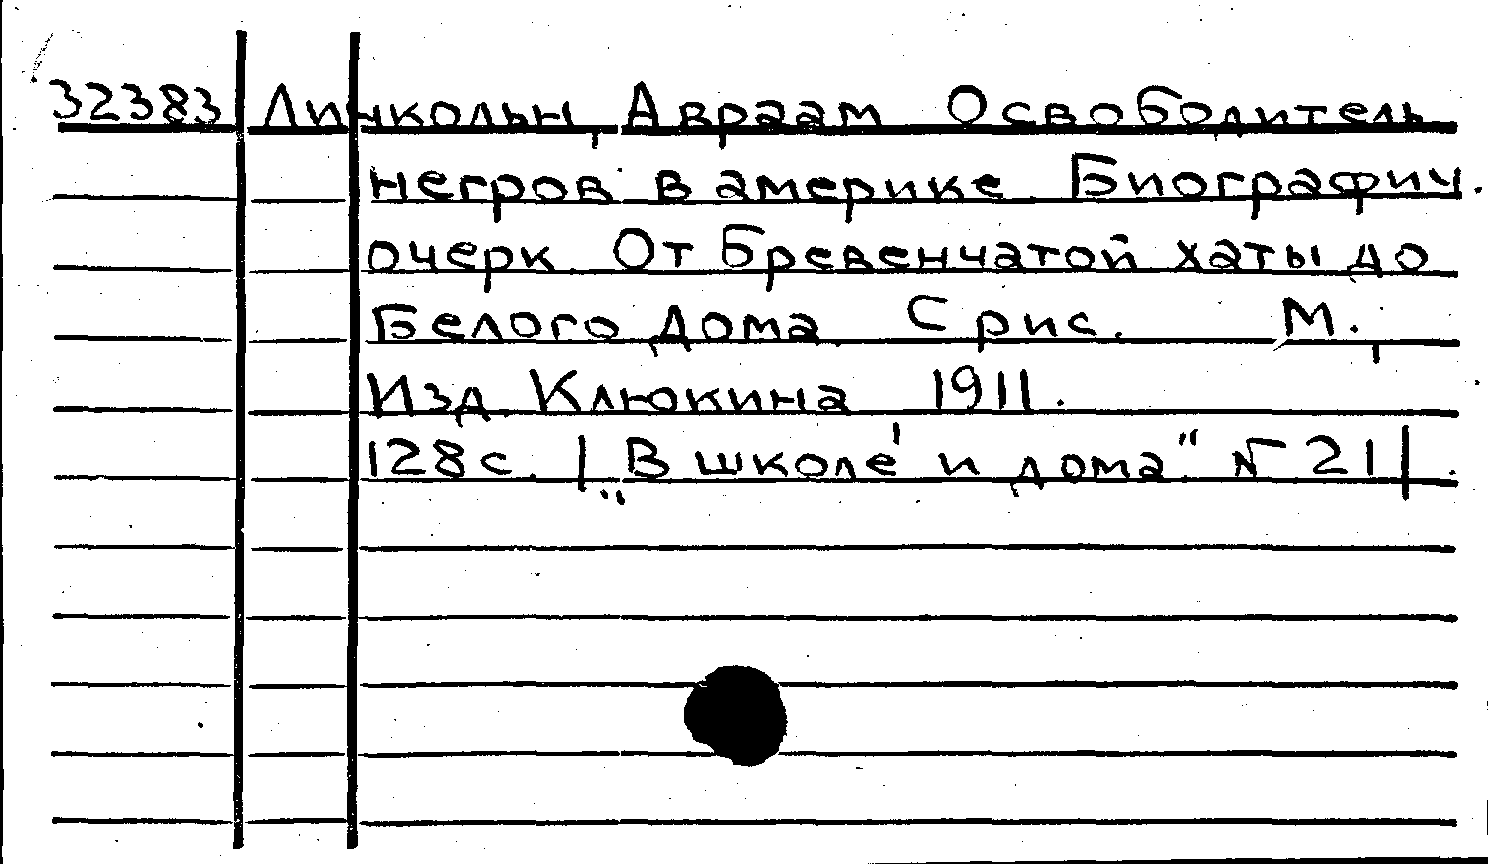 32383 Линкольн, Авраам Освободитель
негров в америке Биографич.
очерк От бревенчатой хаты до
Белого дома С рис. М.,
Изд. Клюкина 1911.
128 с. | „В школе и дома“ № 21|.